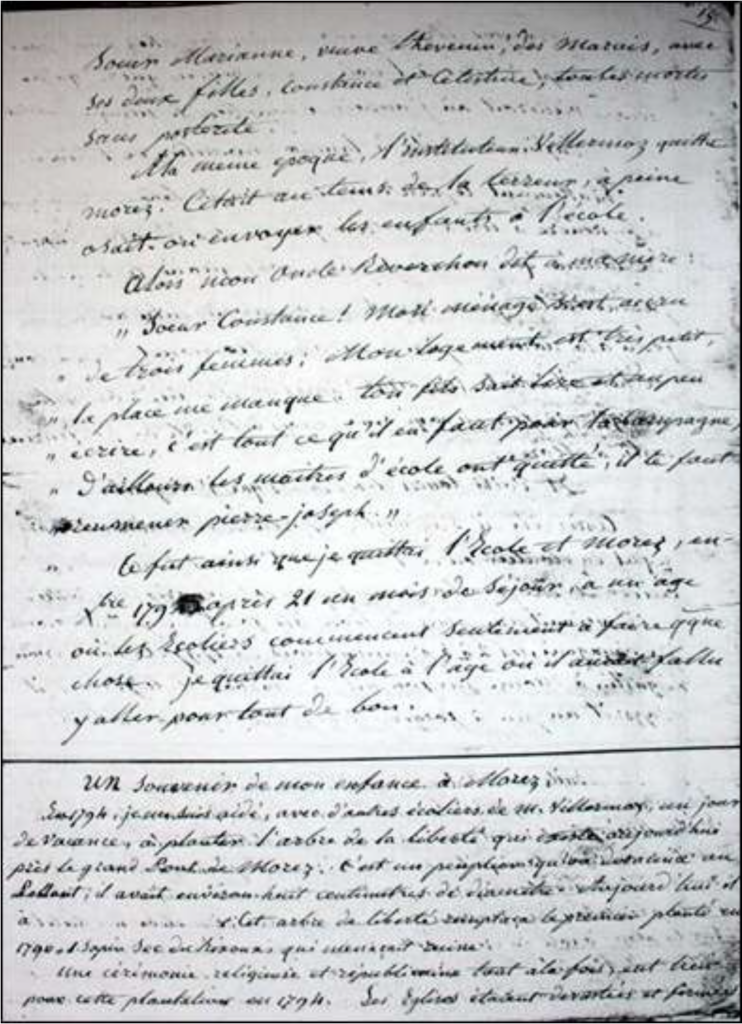 15
Soeur Marianne, veuve Thevenin, des Marais, avec
ses deux filles, Constance et Celestine, toutes mortes
sans posterité.
A la meme epoque, l'instituteur Villermoz quitta
morez. C'était au tems de la terreur, à peine
osait-on envoyer les enfants à l'école.
Alors mon Oncle Reverchon dit à ma mère :
" Soeur Constance ! Mon ménage s'est accru
" de trois femmes ; Mon logement est très petit,
" la place me manque. ton fils sait lire et un peu
" écrire, c'est tout ce qu'il en faut pour la campagne,
" D'ailleurs les maitres d'école ont quitté, il te faut
" remmener pierre-joseph. "
" Ce fut ainsi que je quittai l'Ecole et Morez, en
bre 179 après 21 mois de séjour, a un âge
où les Ecoliers commencent seulement à faire qque
chose. je quittai l'Ecole à l'âge où il aurait fallu
y aller pour tout de bon.
UN Souvenir de mon enfance à Morez,
En 1794, je me suis aidé, avec d'autres écoliers de m. Villermoz, un jour
de vacance, à planter l'arbre de la liberté qui existe aujourd'hui
près le grand Pont de Morez. C'est un peuplier qu'on
il avait environ huit centimètres de diamètre. Aujourd'hui il
a Cet arbre de liberté remplaça le premier planté en
1790, 1 sapin sec du Risoux qui menaçait ruine.
Une cérémonie religieuse et républicaine tout à la fois, eut lieu
pour cette plantation en 1794. Les Eglises étaient devastées et fermées